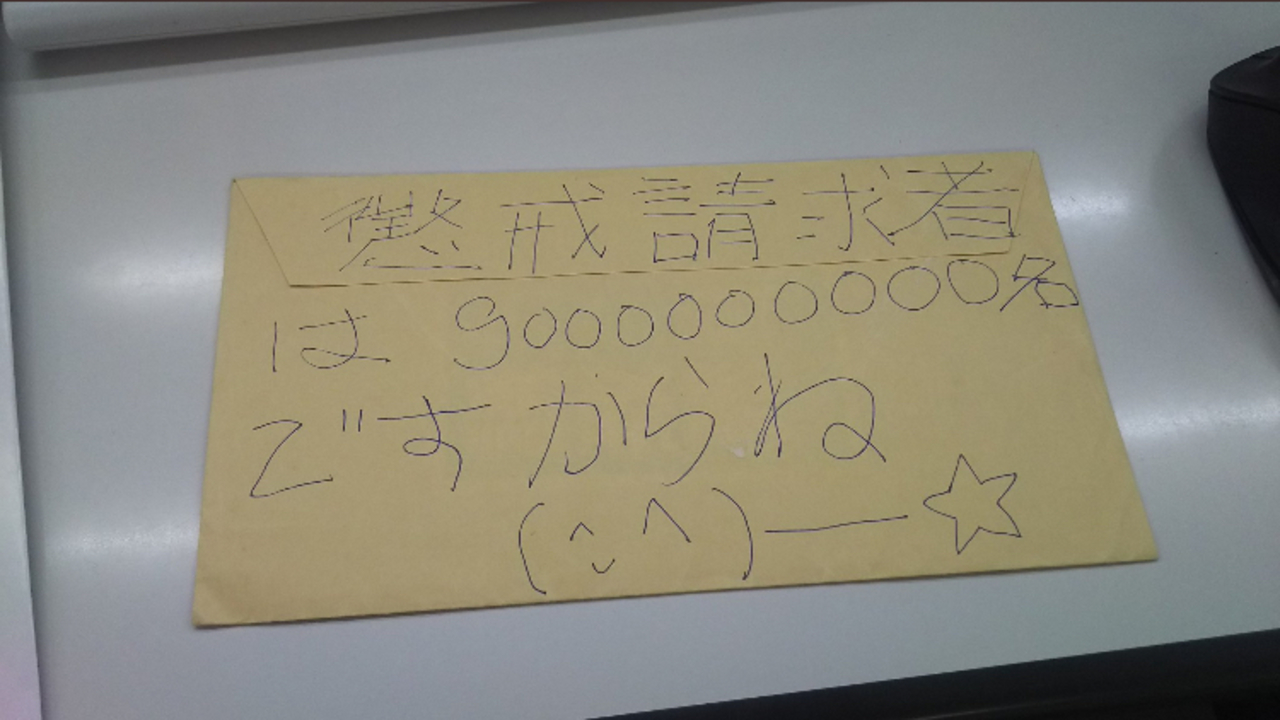 懲戒請求者
は9000000000名
ですからね
(^ ^)―☆